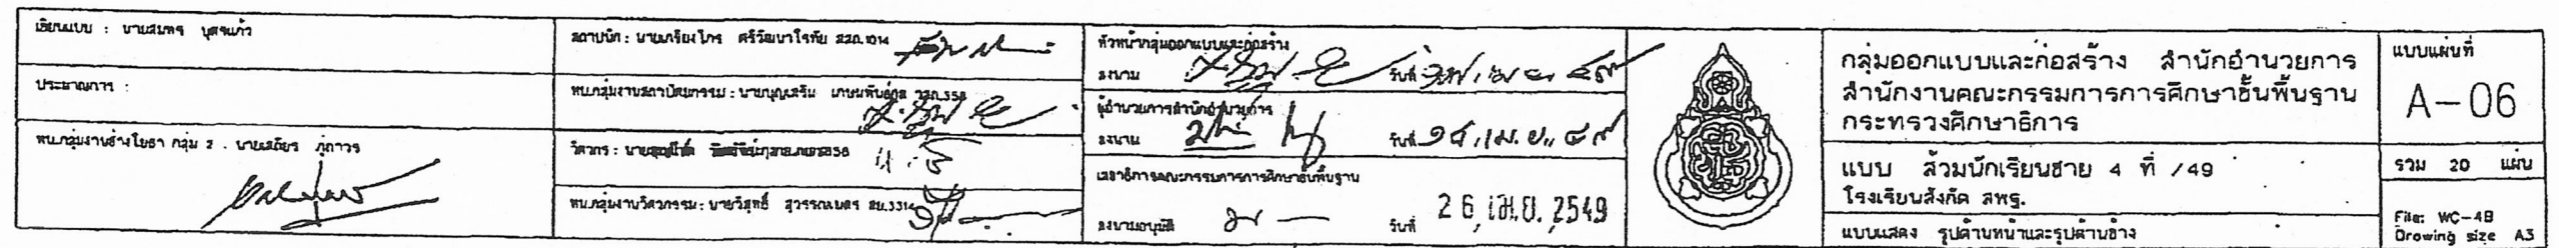 เขียนแบบ : นายสมพร บุตรแก้ว
ประมาณการ :
หน.กลุ่มงานช่างโยธา กลุ่ม 2 . นายเสถียร ภู่ถาวร
สถาปนิก : นายเกรียงไกร ศรีวัฒนาโรทัย
หน.กลุ่มงานสถาปัตยกรรม : นายบุญเสริม
วิศวกร :
หน.กลุ่มงานวิศวกรรม : นายวิสุทธิ์ สุวรรณเนตร สย.3314
หัวหน้ากลุ่มออกแบบและก่อสร้าง
ลงนาม วันที่
ผู้อำนวยการสำนักอำนวยการ
ลงนาม วันที่ ๑๘ เม.ย. ๔๙
เลขาธิการคณะกรรมการการศึกษาขั้นพื้นฐาน
ลงนามอนุมัติ วันที่ 26 เม.ย. 2549
กลุ่มออกแบบและก่อสร้าง สำนักอำนวยการ
สำนักงานคณะกรรมการการศึกษาขั้นพื้นฐาน
กระทรวงศึกษาธิการ
แบบ ส้วมนักเรียนชาย 4 ที่ /49
โรงเรียนสังกัด สพฐ.
แบบแสดง รูปด้านหน้าและรูปด้านข้าง
แบบแผ่นที่
A-06
รวม 20 แผ่น
File: WC-4B
Drawing size A3